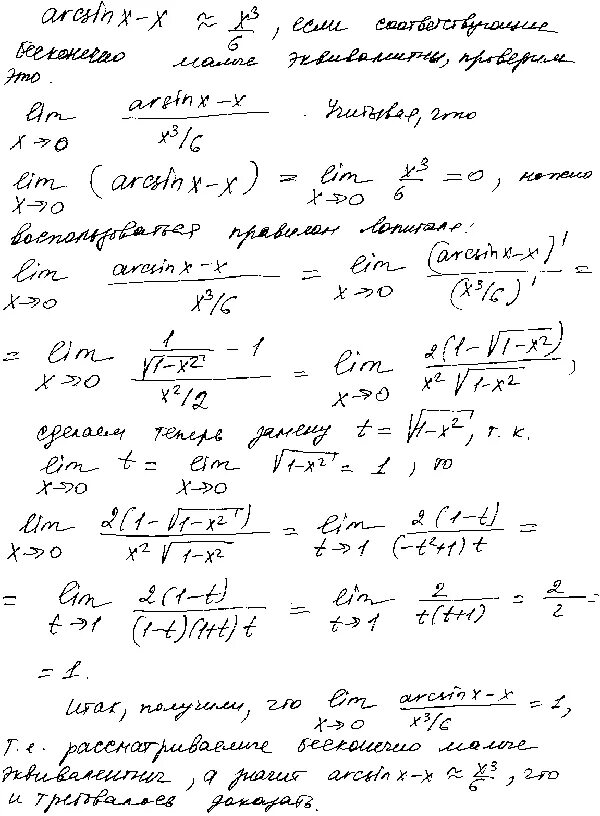 arcsin x − x ≈ x³/6, если соответствующие
бесконечно малые эквивалентны, проверим
это.
lim x→0 (arcsin x − x)/(x³/6). Учитывая, что
lim x→0 (arcsin x − x) = lim x→0 x³/6 = 0, можно
воспользоваться правилом Лопиталя:
lim x→0 (arcsin x − x)/(x³/6) = lim x→0 (arcsin x − x)'/(x³/6)' =
= lim x→0 (1/√(1−x²) − 1)/(x²/2) = lim x→0 2(1−√(1−x²))/(x²√(1−x²)),
сделаем теперь замену t = √(1−x²), т.к.
lim x→0 t = lim x→0 √(1−x²) = 1, то
lim x→0 2(1−√(1−x²))/(x²√(1−x²)) = lim t→1 2(1−t)/((−t²+1)t) =
= lim t→1 2(1−t)/((1−t)(1+t)t) = lim t→1 2/(t(t+1)) = 2/2 =
= 1.
Итак, получили, что lim x→0 (arcsin x − x)/(x³/6) = 1,
т.е. рассматриваемые бесконечно малые
эквивалентны, а значит arcsin x − x ≈ x³/6, что
и требовалось доказать.